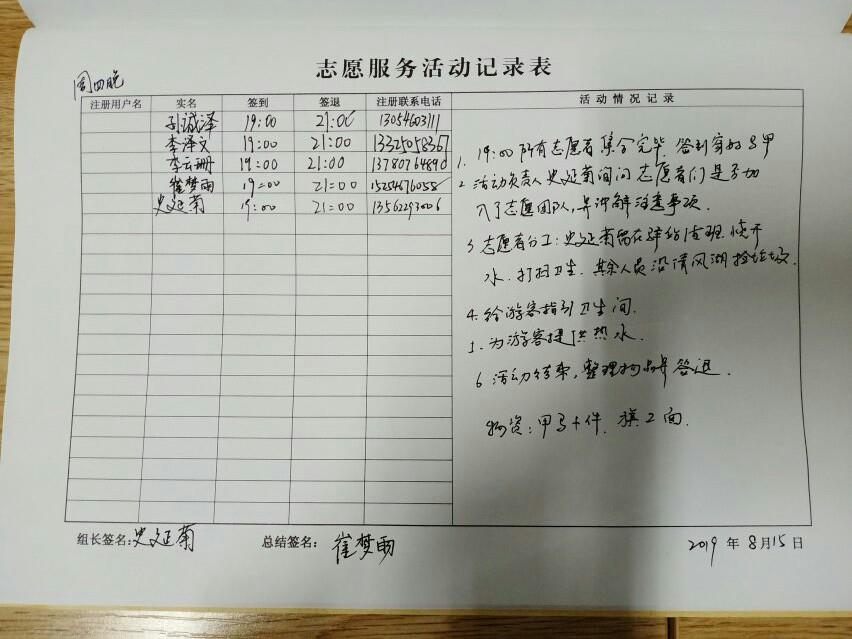 志愿服务活动记录表
周四晚
注册用户名 实名 签到 签退 注册联系电话 活动情况记录
孙诚泽 19:00 21:00 13054603111
李泽文 19:00 21:00 13325058367
李云珊 19:00 21:00 13780764890
崔梦雨 19:00 21:00 15254676058
史延菊 19:00 21:00 13562293006
1. 19:00 所有志愿者集合完毕 签到穿好马甲
2 活动负责人史延菊询问志愿者们是否加
入了志愿团队,并讲解注意事项.
3 志愿者分工:史延菊留在驿站值班.烧开
水.打扫卫生.其余人员沿清风湖捡垃圾.
4. 给游客指引卫生间.
5. 为游客提供热水.
6 活动结束,整理物品并签退.
物资:甲马十件.旗2面.
组长签名:史延菊 总结签名:崔梦雨 2019年8月15日